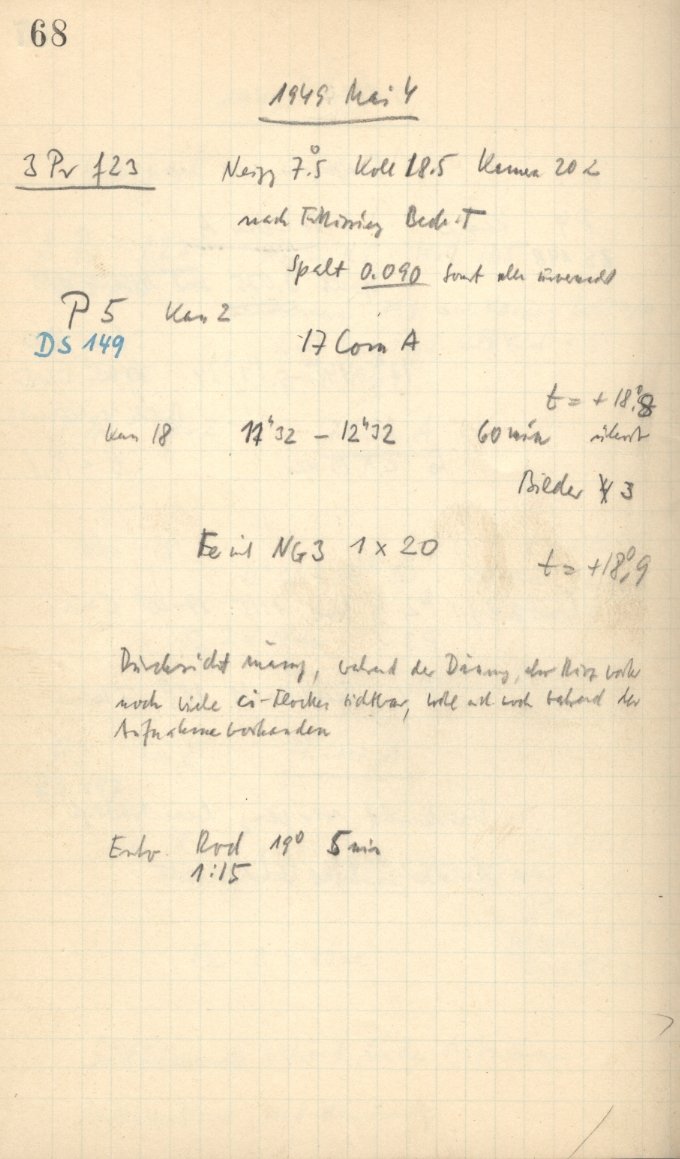 68
1949 Mai 4
3 Pr f23 Neigg 7°.5 Koll 18.5 Kamera 20
nach
Spalt 0.090 sonst alles
P 5 Kass 2
DS 149 17 Com A
t = +18°,8
Kass 18 11ʰ32 – 12ʰ32 60 min
Bilder 3
Fe mit NG3 1 x 20
t = +18°,9
Durchsicht mässig, während der Dämmg,
noch viele ci-Flocken sichtbar, wohl auch noch während der
Aufnahme vorhanden
Entw. Rod 19° 5 min
1:15